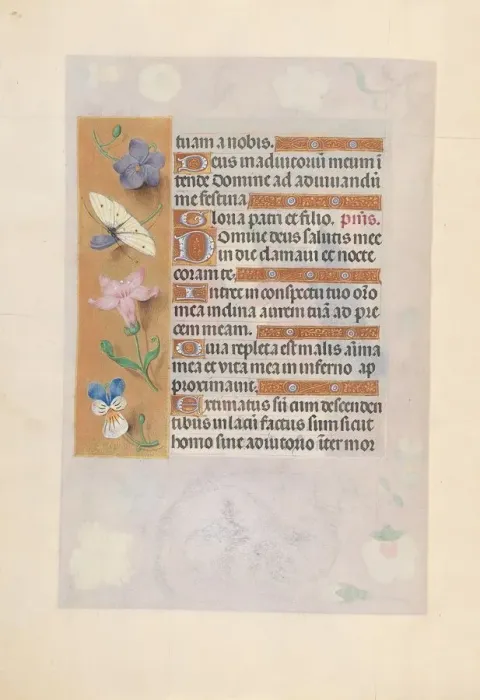 tuam a nobis.
Deus in adiutoriū meum ī
tende Domine ad adiuuandū
me festina
Gloria patri et filio. p̄us.
Domine deus salutis mee
in die clamaui et nocte
coram te.
Intret in conspectu tuo oro
mea inclina aurem tuā ad pre
cem meam.
Quia repleta est malis aīma
mea et vita mea in inferno ap
propinquauit.
Estimatus sū cum descenden
tibus in lacū factus sum sicut
homo sine adiutorio īter mor